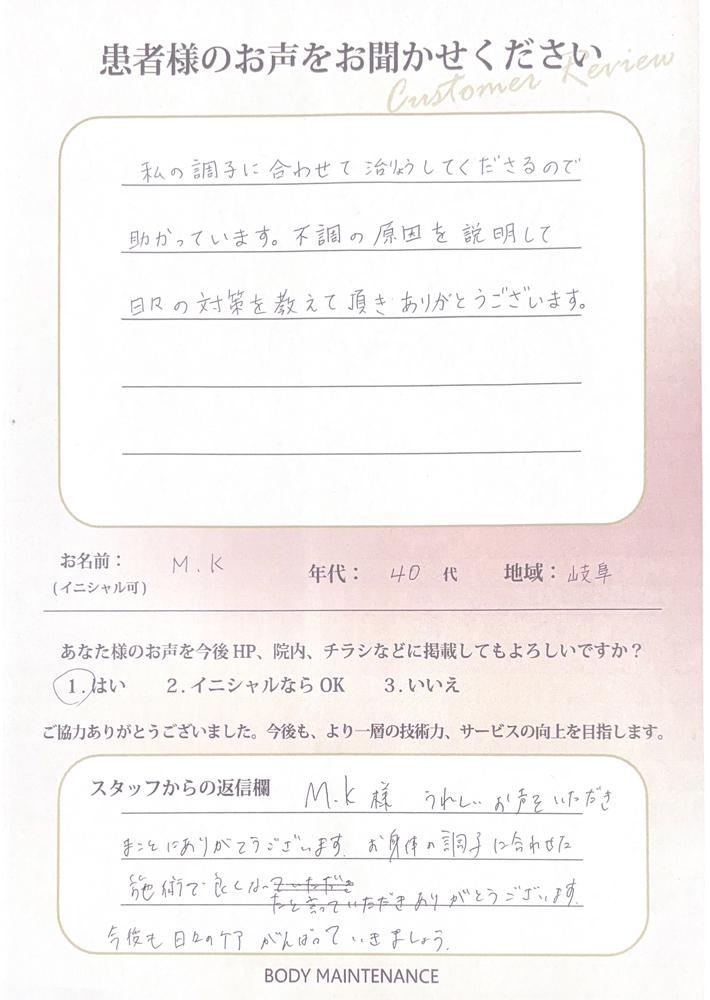 患者様のお声をお聞かせください
Customer Review
私の調子に合わせて治りょうしてくださるので
助かっています。不調の原因を説明して
日々の対策を教えて頂きありがとうございます。
お名前： M.K 年代： 40 代 地域：岐阜
(イニシャル可)
あなた様のお声を今後HP、院内、チラシなどに掲載してもよろしいですか？
1.はい 2.イニシャルならOK 3.いいえ
ご協力ありがとうございました。今後も、より一層の技術力、サービスの向上を目指します。
スタッフからの返信欄 M.K様 うれしいお声をいただき
まことにありがとうございます。お身体の調子に合わせた
施術で良くなっていただき
たと言っていただきありがとうございます。
今後も日々のケアがんばっていきましょう。
BODY MAINTENANCE